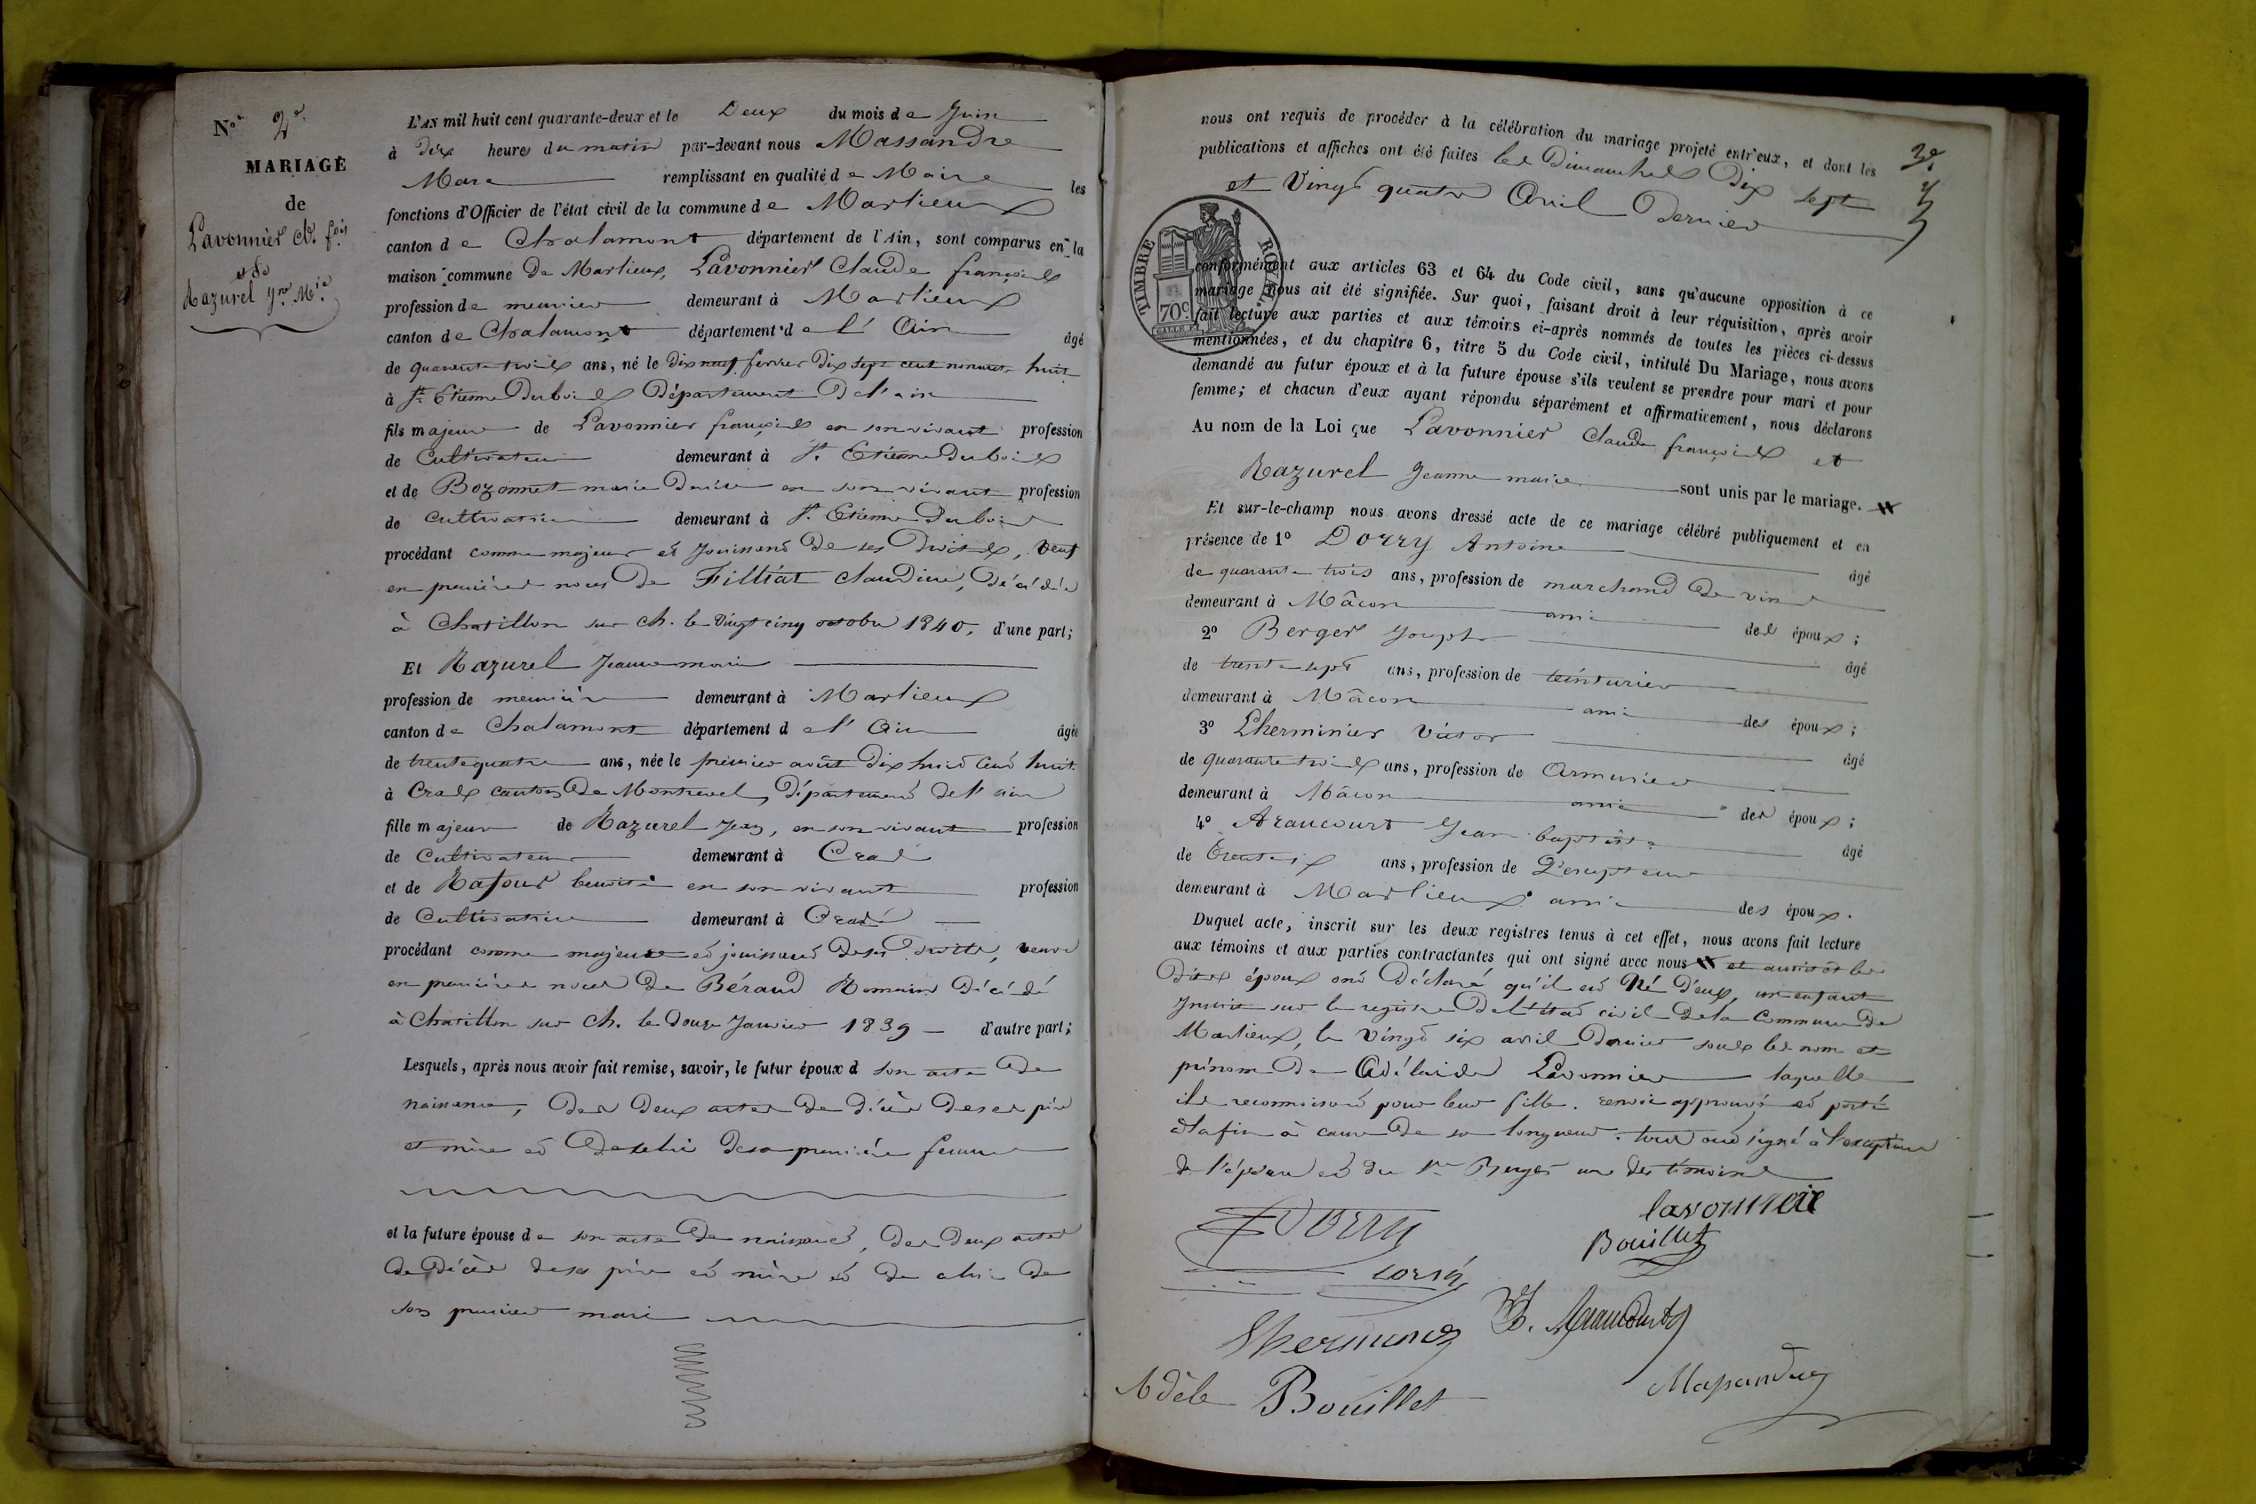 N.º 2.e
MARIAGE
de
Lavonnier Cl. fois
et de
Razurel Jne Mie
L'AN mil huit cent quarante-deux et le Deux du mois de Juin
à dix heures du matin par-devant nous Massandre
Marc remplissant en qualité de Maire les
fonctions d'Officier de l'état civil de la commune de Marlieux
canton de Chalamont département de l'Ain, sont comparus en la
maison commune de Marlieux, Lavonnier Claude françois
profession de meunier demeurant à Marlieux
canton de Chalamont département de l'Ain âgé
de quarante trois ans, né le dix neuf fevrier dix sept cent nonante huit
à St Etienne Dubois Département De l'ain
fils majeur de Lavonnier françois en son vivant profession
de Cultivateur demeurant à St. Etienne Dubois
et de Bozonnet marie Denise en son vivant profession
de cultivatrice demeurant à St. Etienne Dubois
procédant comme majeur et jouissant de ses Droits, veuf
en premières noces De Filliat claudine, Décédée
à Chatillon sur Ch. le vingt cinq octobre 1840, d'une part;
Et Razurel Jeanne marie
profession de meunière demeurant à Marlieux
canton de Chalamont département de l'Ain âgée
de trente quatre ans, née le premier août Dix huit cent huit
à Cras canton De Montrevel, Département de l'ain
fille majeure de Razurel Jean, en son vivant profession
de Cultivateur demeurant à Cras
et de Rafour benoite en son vivant profession
de Cultivatrice demeurant à Cras
procédant comme majeure et jouissant de ses Droits, veuve
en premières noces De Béraud Romain Décédé
à Chatillon sur Ch. le Douze Janvier 1839 d'autre part;
Lesquels, après nous avoir fait remise, savoir, le futur époux d son acte de
naissance, Des Deux actes De décès De ses père
et mère et De celui de sa première femme
et la future épouse de son acte De naissance, Des Deux actes
De Décès de ses père et mère et De celui De
son premier mari
nous ont requis de procéder à la célébration du mariage projeté entr'eux, et dont les
publications et affiches ont été faites les Dimanches Dix sept
et Vingt quatre Avril Dernier
TIMBRE ROYAL
70 c.
conformément aux articles 63 et 64 du Code civil, sans qu'aucune opposition à ce
mariage nous ait été signifiée. Sur quoi, faisant droit à leur réquisition, après avoir
fait lecture aux parties et aux témoins ci-après nommés de toutes les pièces ci-dessus
mentionnées, et du chapitre 6, titre 5 du Code civil, intitulé Du Mariage, nous avons
demandé au futur époux et à la future épouse s'ils veulent se prendre pour mari et pour
femme; et chacun d'eux ayant répondu séparément et affirmativement, nous déclarons
Au nom de la Loi que Lavonnier Claude françois et
Razurel Jeanne marie sont unis par le mariage.
Et sur-le-champ nous avons dressé acte de ce mariage célébré publiquement et en
présence de 1º Dorry Antoine âgé
de quarante trois ans, profession de marchand De vin
demeurant à Mâcon ami des époux;
2º Berger Joseph âgé
de trente sept ans, profession de teinturier
demeurant à Mâcon ami des époux;
3º Lherminier Victor âgé
de quarante trois ans, profession de Armurier
demeurant à Mâcon ami des époux;
4º Araucourt Jean baptiste âgé
de trente six ans, profession de Percepteur
demeurant à Marlieux ami des époux.
Duquel acte, inscrit sur les deux registres tenus à cet effet, nous avons fait lecture
aux témoins et aux parties contractantes qui ont signé avec nous et aussitôt les
Dits époux ont Déclaré qu'il est Né D'eux, un enfant
Inscrit sur le registre De l'état civil De la Commune De
Marlieux, le Vingt six avril Dernier sous les nom et
prénom De Adélaide Lavonnier laquelle
ils reconnoissent pour leur fille. renvoi approuvé et porté
à la fin à cause De sa longueur. tous ont signé à l'exception
de l'épouse et du sr Berger un Des témoins
Dorry
lavonnier
Bouillet
Lherminier
J. B. Araucourt
Adèle Bouillet
Massandre